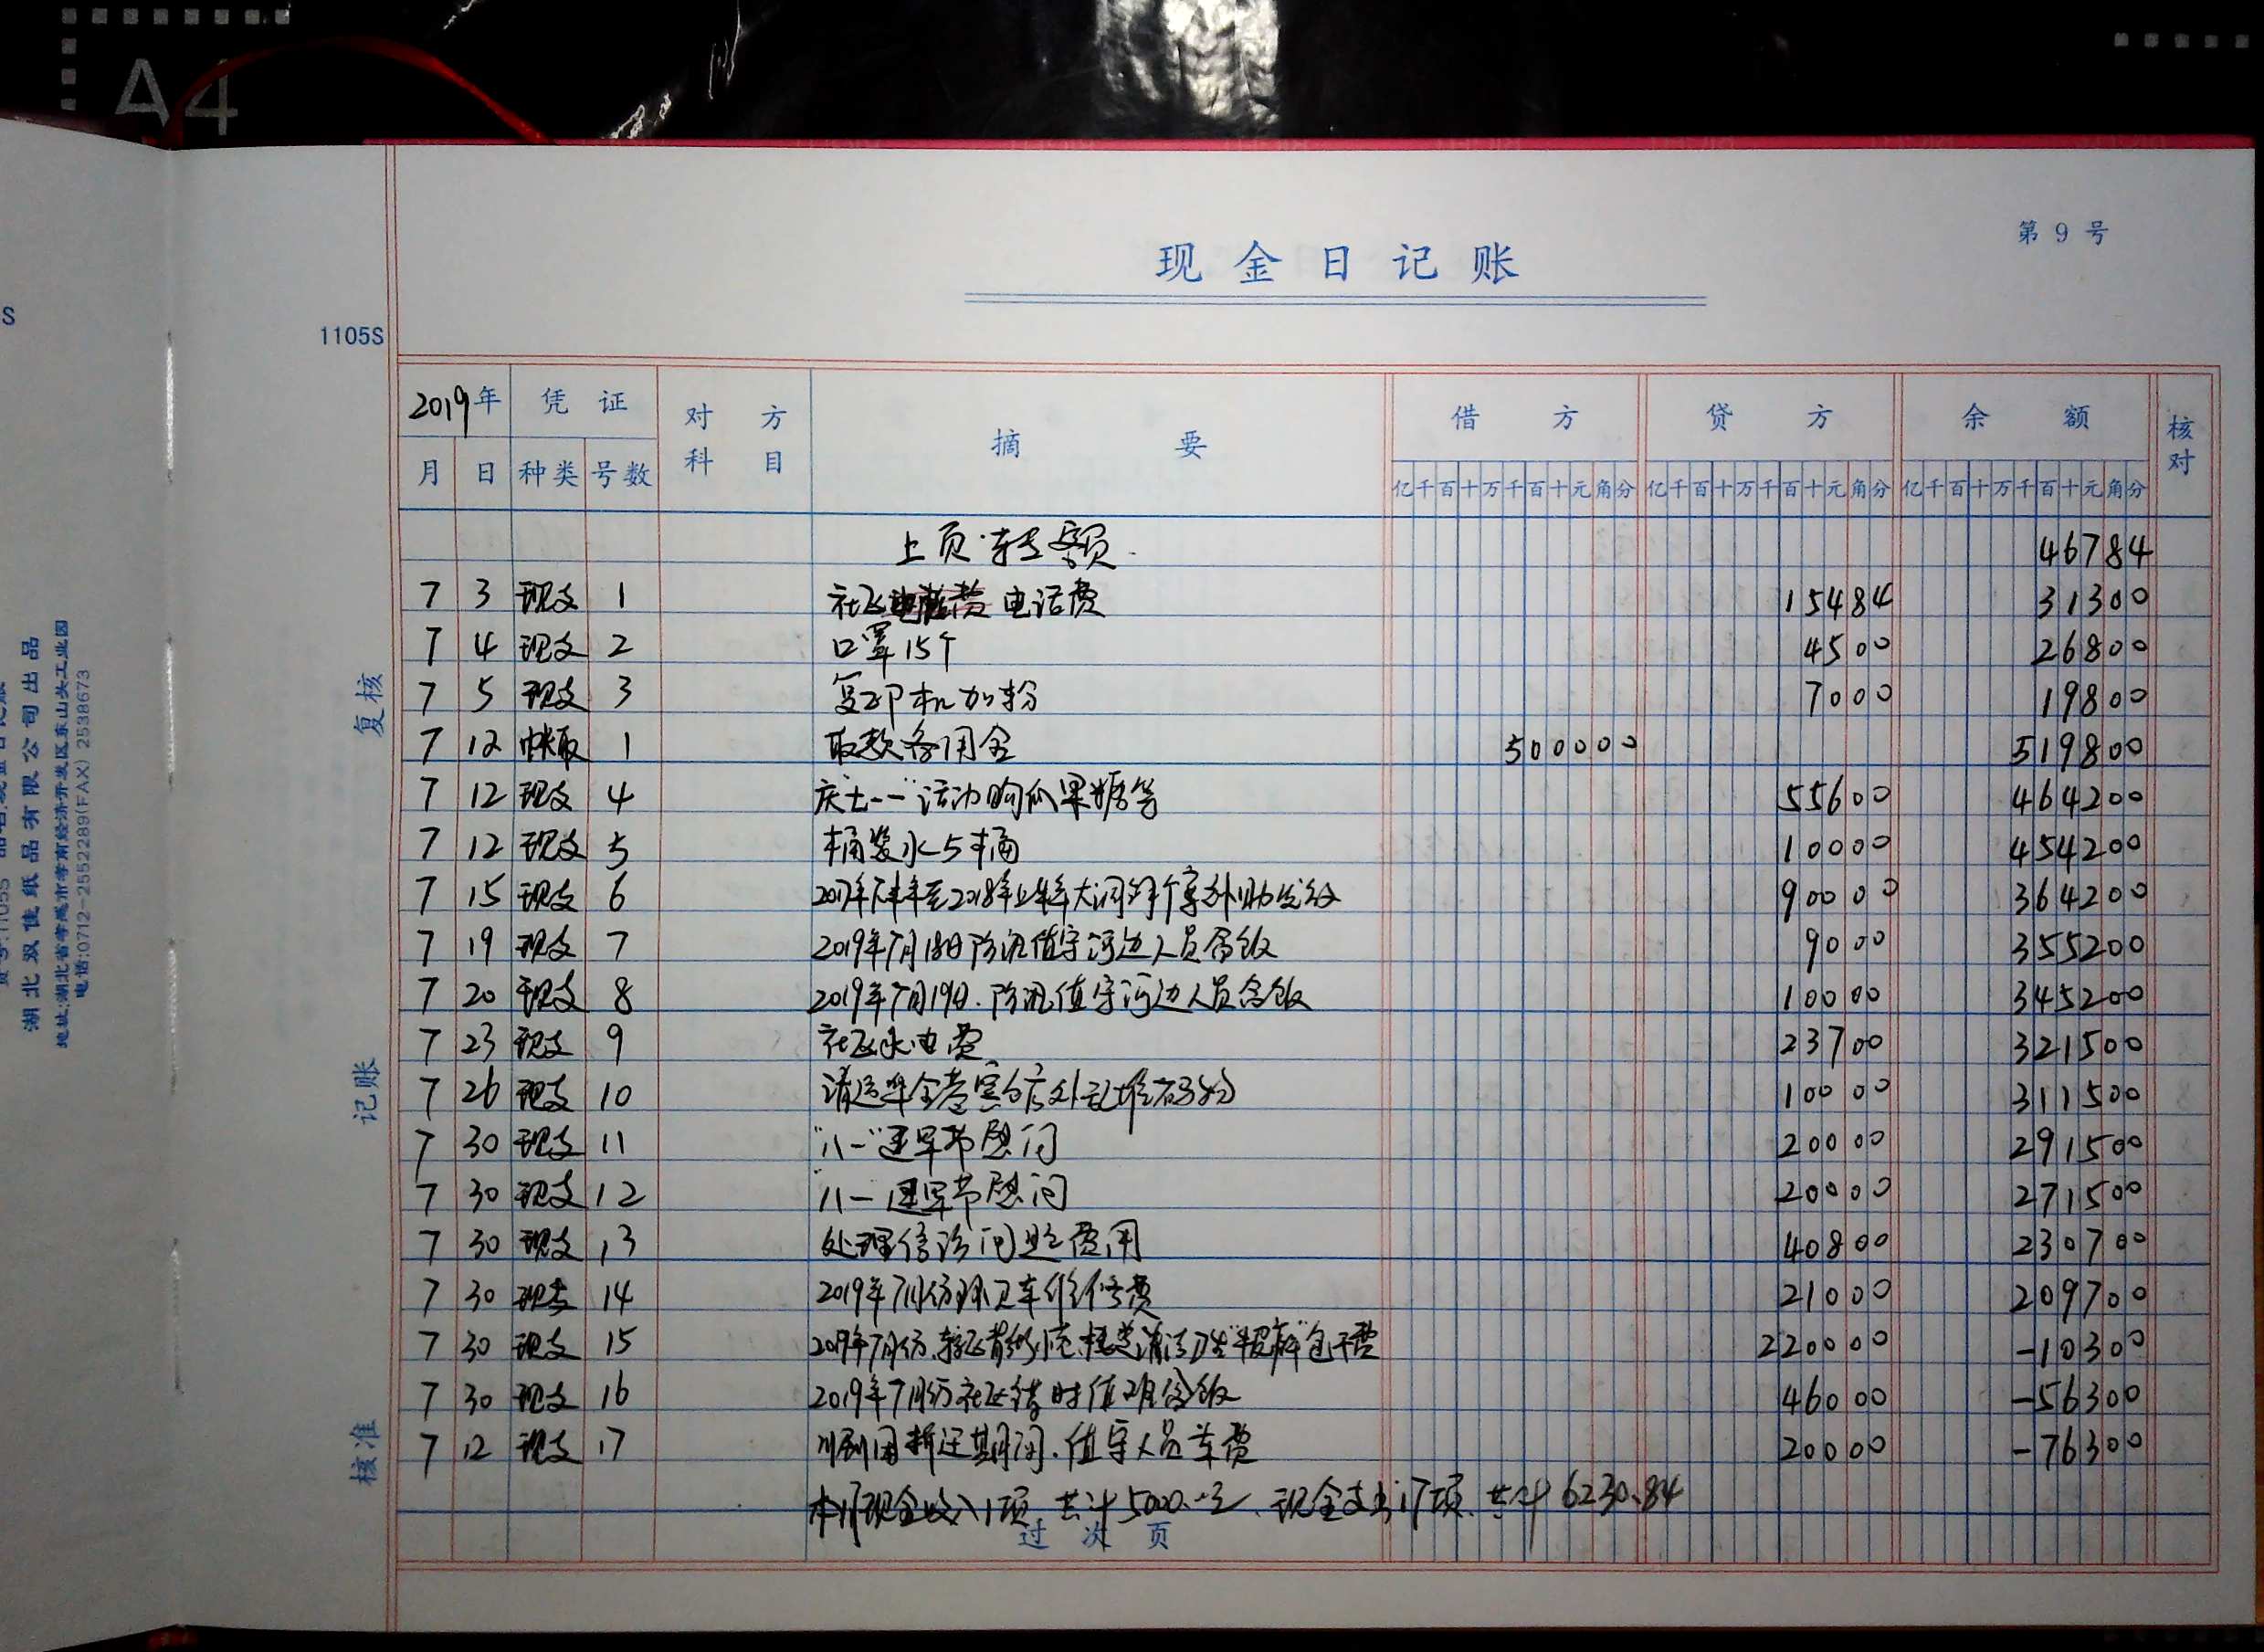 A4
第 9 号
现金日记账
1105S
2019年 凭证 对方科目 摘要 借方 贷方 余额 核对
月 日 种类 号数 亿千百十万千百十元角分 亿千百十万千百十元角分 亿千百十万千百十元角分
上页转额 46784
7 3 现支 1 社区 电话费 15484 31300
7 4 现支 2 口罩15个 4500 26800
7 5 现支 3 复印机加粉 7000 19800
7 12 1 取款备用金 500000 519800
7 12 现支 4 庆七一"活动购瓜果糖等 55600 464200
7 12 现支 5 桶装水5桶 10000 454200
7 15 现支 6 2017年下半年至2018年上半年大 90000 364200
7 19 现支 7 2019年7月18日防汛值守河边人员含饭 9000 355200
7 20 现支 8 2019年7月19日.防汛值守河边人员含饭 10000 345200
7 23 现支 9 社区水电费 23700 321500
7 26 现支 10 清运 10000 311500
7 30 现支 11 "八一"建军节慰问 20000 291500
7 30 现支 12 八一建军节慰问 20000 271500
7 30 现支 13 处理信访问题费用 40800 230700
7 30 现支 14 2019年7月份环卫车维修费 21000 209700
7 30 现支 15 2019年7月份 包干费 220000 -10300
7 30 现支 16 2019年7月份社区错时值班含饭 46000 -56300
7 12 现支 17 拆迁期间.值守人员 费 20000 -76300
本月现金收入1项 共计5000.-元、现金支出17项 共计6230.84
过次页
复核
记账
核准
湖北双佳纸品有限公司出品
地址:湖北省孝感市孝南经济开发区东山头工业园
电话:0712-2552289(FAX) 2538673